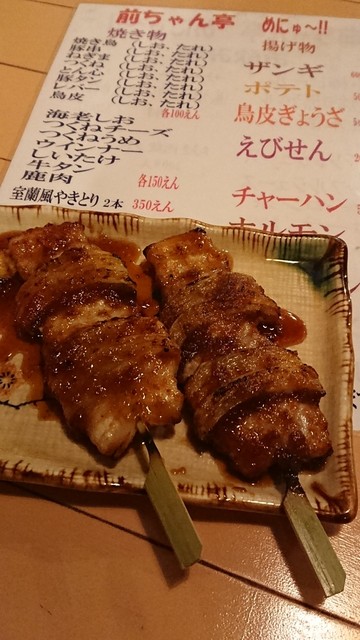 前ちゃん亭 めにゅ~!!
焼き物
焼き鳥 (しお、たれ)
豚串 (しお、たれ)
ねぎま (しお、たれ)
つくね (しお、たれ)
しん心 (しお、たれ)
豚タン (しお、たれ)
レバー (しお、たれ)
鳥皮 (しお、たれ)
各100えん
海老しお
つくねチーズ
つくねゆうめ
ウインナー
しいたけ
牛タン
鹿肉
各150えん
室蘭風やきとり 2本 350えん
揚げ物
ザンギ
ポテト
鳥皮ぎょうざ
えびせん
チャーハン
ホルモン